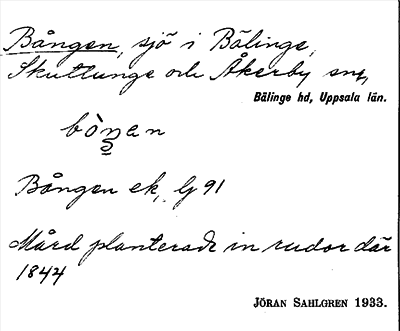 Bången, sjö i Bälinge,
Skuttunge och Åkerby snr,
Bälinge hd, Uppsala län.
bò̀ŋen
Bången ek, lj 91
Mård planterade in rudor där
1844
JÖRAN SAHLGREN 1933.